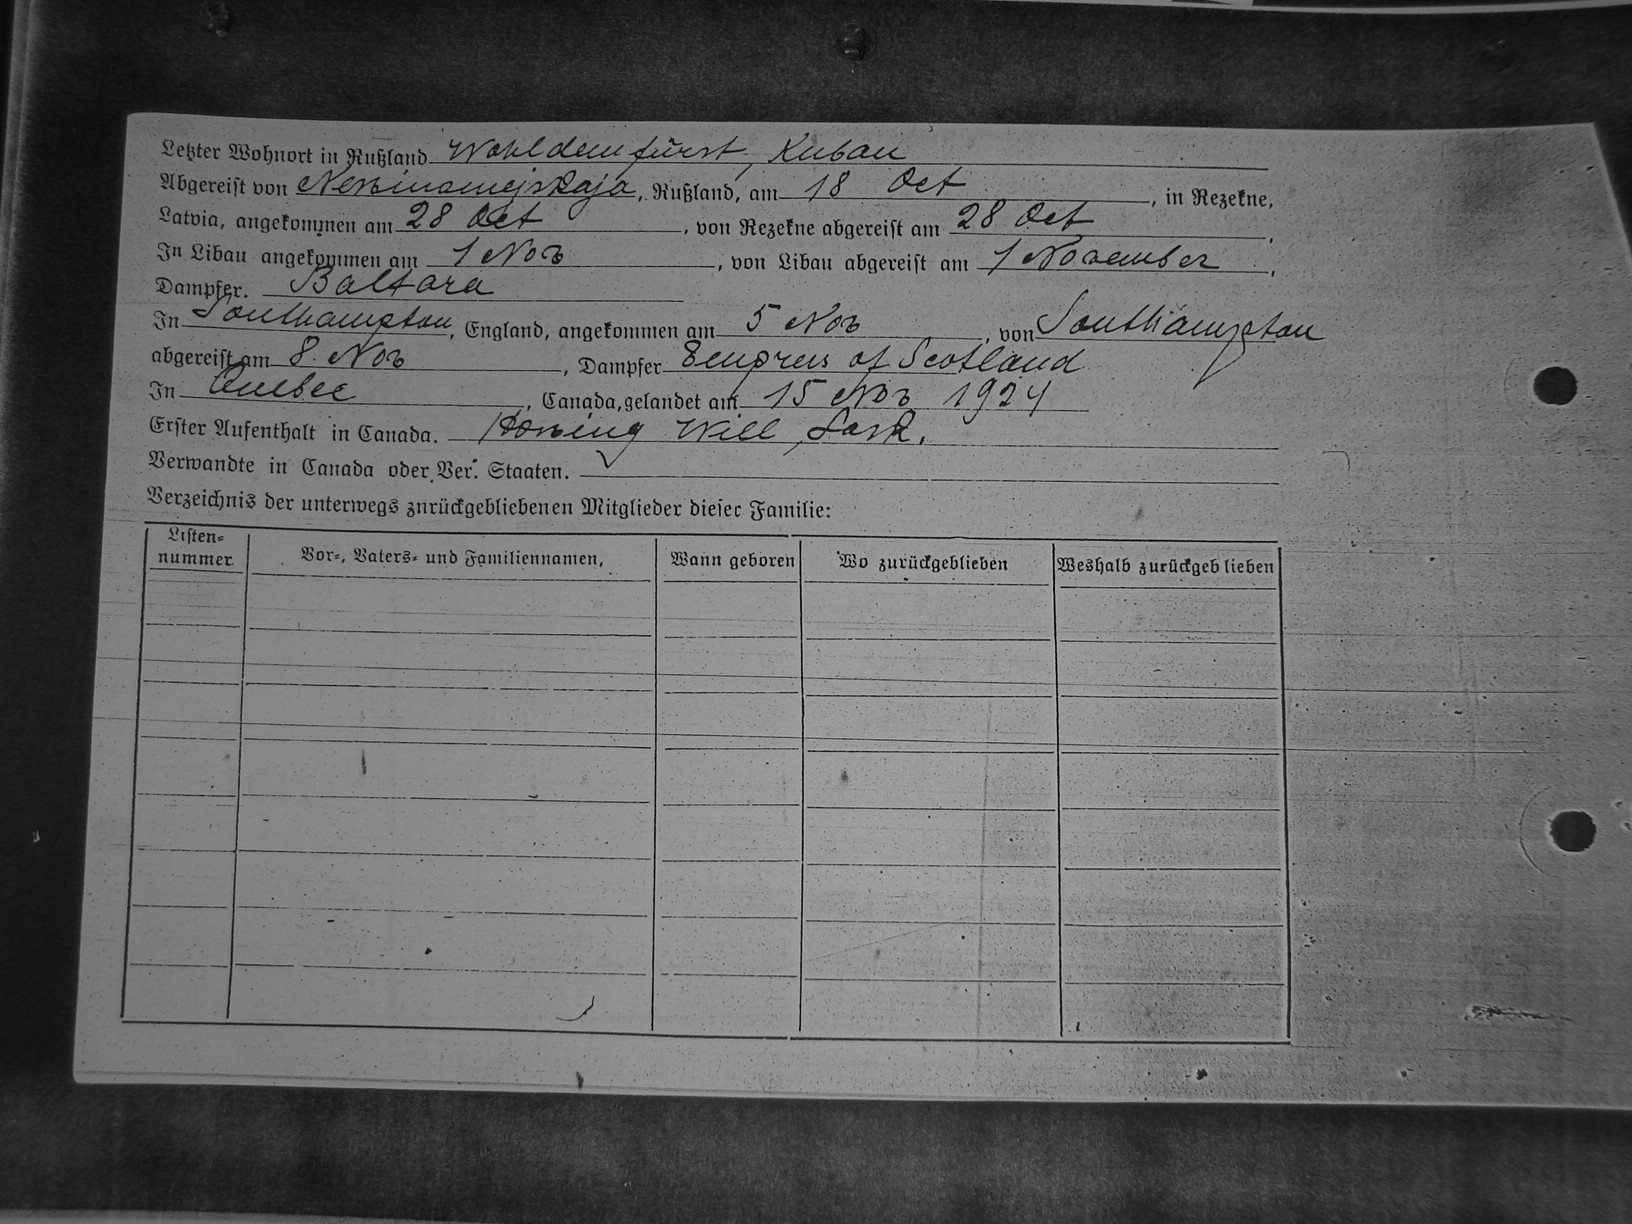 Letzter Wohnort in Rußland Wohldemfürst, Kuban
Abgereist von Newinomejskaja, Rußland, am 18 Oct, in Rezekne,
Latvia, angekommen am 28 Oct, von Rezekne abgereist am 28 Oct,
In Libau angekommen am 1 Nov, von Libau abgereist am 1 November,
Dampfer. Baltara
In Southampton, England, angekommen am 5 Nov, von Southampton
abgereist am 8. Nov, Dampfer Empress of Scotland
In Quebec, Canada, gelandet am 15 Nov 1924
Erster Aufenthalt in Canada. Will, Sask.
Verwandte in Canada oder Ver. Staaten.
Verzeichnis der unterwegs zurückgebliebenen Mitglieder dieser Familie:
Listen-
nummer. Vor-, Vaters- und Familiennamen, Wann geboren Wo zurückgeblieben Weshalb zurückgeblieben